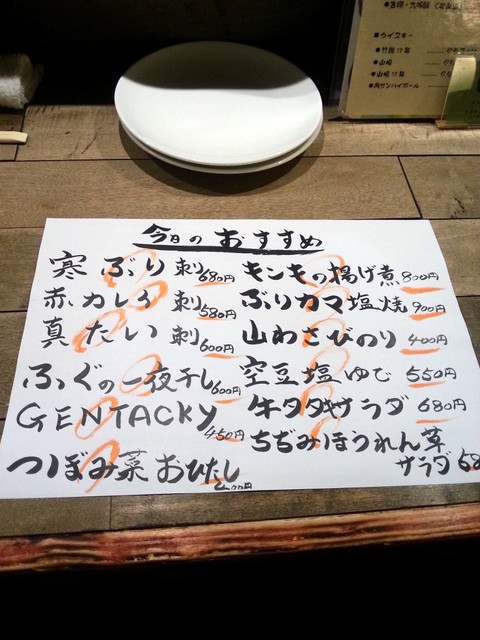 今日のおすすめ
寒ぶり 刺 680円
赤カレイ 刺 580円
真たい 刺 600円
ふぐの一夜干し 600円
GENTACKY 450円
つぼみ菜おひたし
キンキの揚げ煮 800円
ぶりカマ塩焼 900円
山わさびのり 400円
空豆塩ゆで 550円
牛タタキサラダ 680円
ちぢみほうれん草
サラダ 68
●ウイスキー
●竹鶴12年
●山崎
●山崎12年
●角サンハイボール